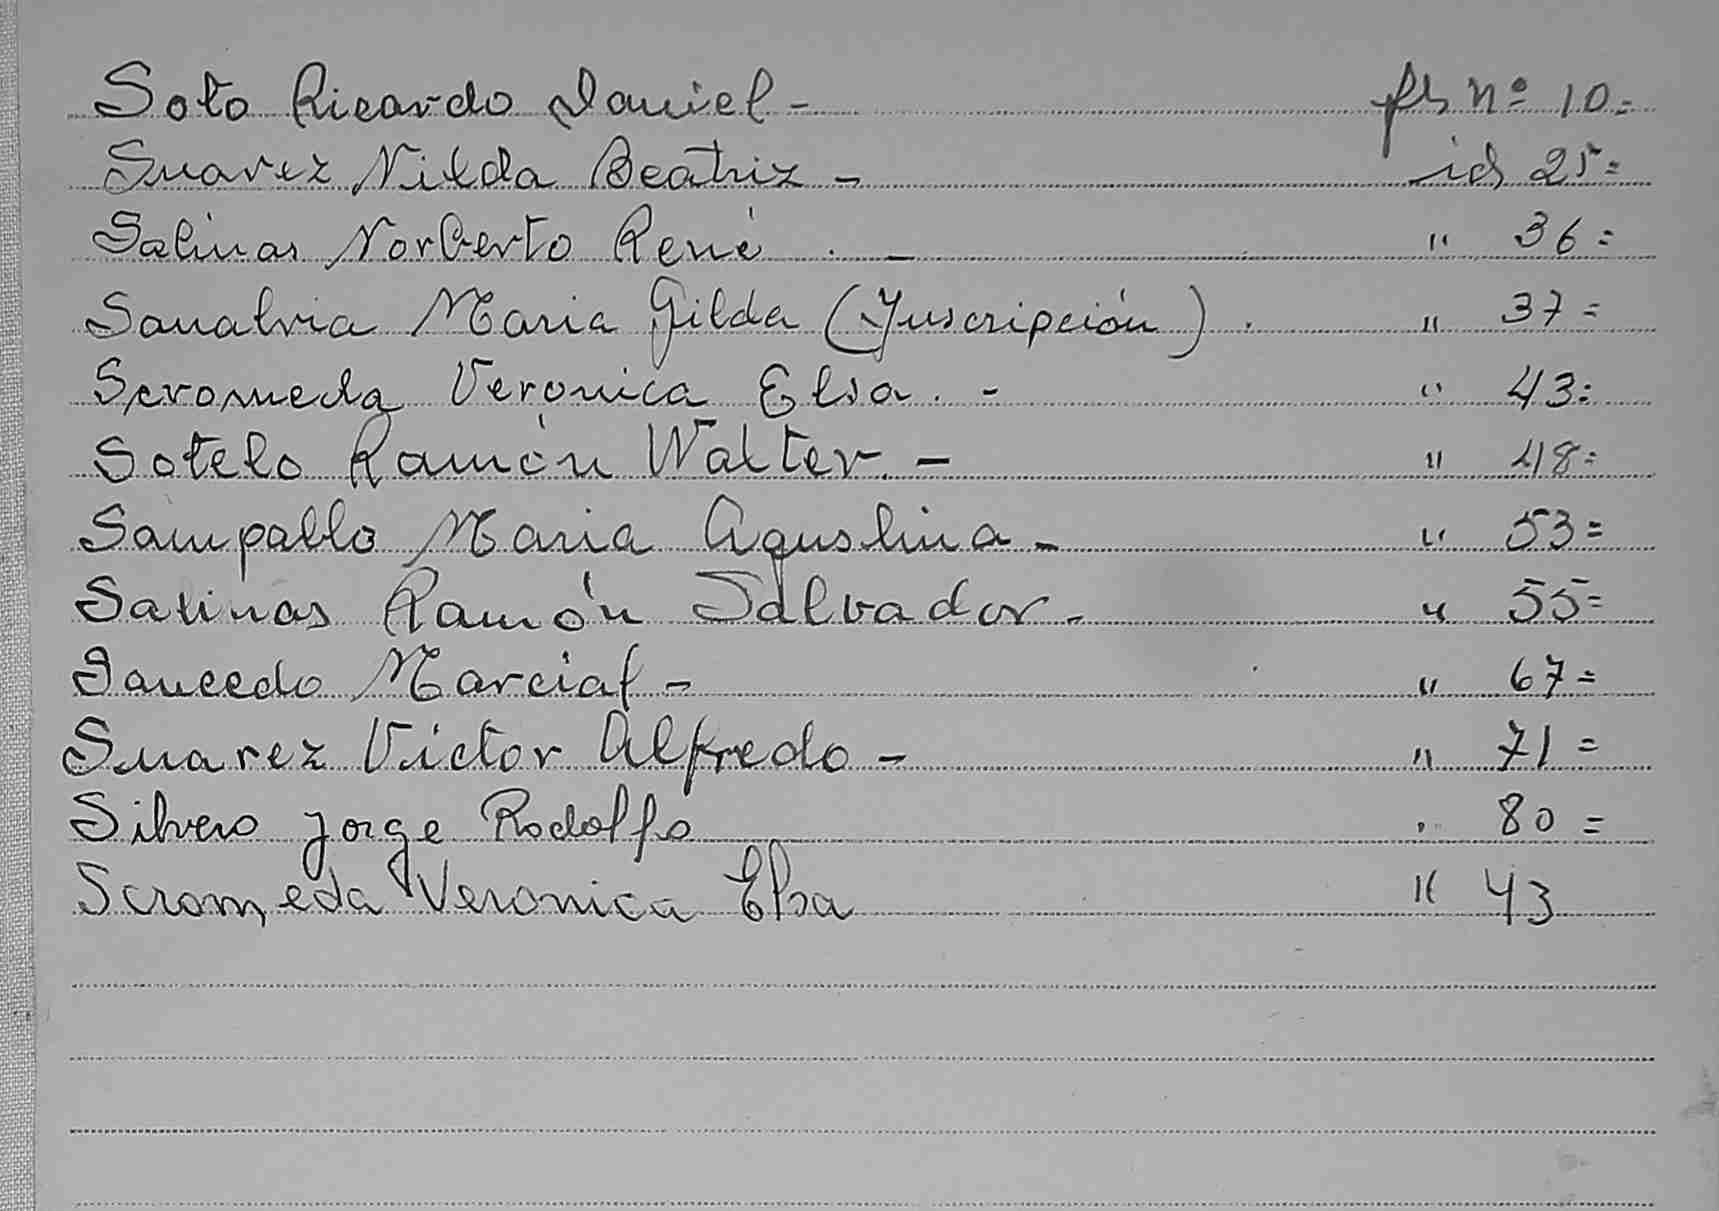 Soto Ricardo Daniel - fs nº 10 =
Suarez Nilda Beatriz - id 25 =
Salinas Norberto René . - " 36 =
Sanabria Maria Gilda (Inscripción) . " 37 =
Scromeda Veronica Elsa . - " 43 =
Sotelo Ramón Walter - " 48 =
Sampallo Maria Agustina - " 53 =
Salinas Ramón Salvador - " 55 =
Saucedo Marcial - " 67 =
Suarez Victor Alfredo - " 71 =
Silvero Jorge Rodolfo " 80 =
Scromeda Veronica Elsa " 43